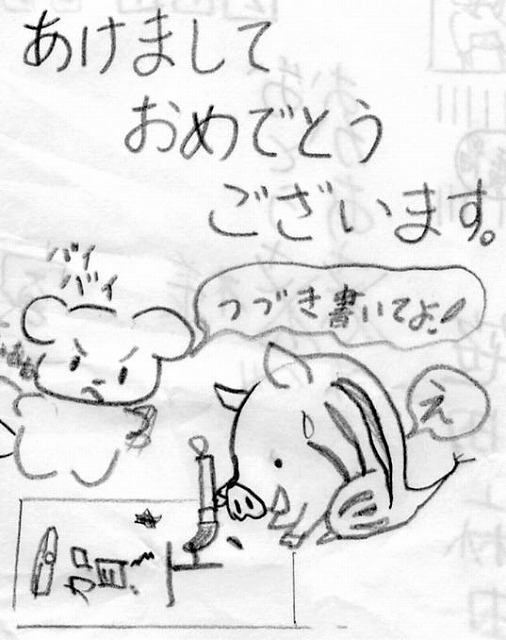 あけまして
おめでとう
ございます。
バイ
バイ
つづき書いてよ!
え
賀正